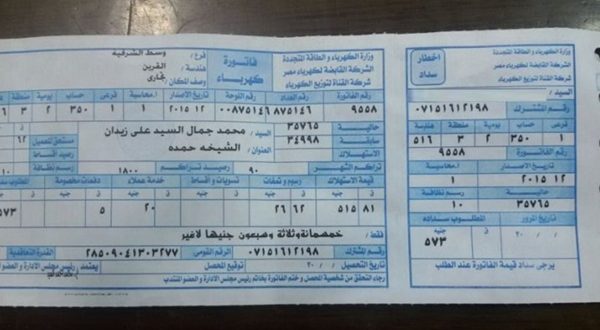 وزارة الكهرباء و الطاقة المتجددة
الشركة القابضة لكهرباء مصر
شركة القناة لتوزيع الكهرباء
فاتورة
كهرباء
فرع / وسط الشرقيه
هندسة / القرين
وصف المكان / تجارى
رقم الفاتورة
رقم العداد
رقم اللوحة
تاريخ الاصدار
ا.محاسبة
فرعى
حساب
يومية
منطقة
٩٥٥٨
٨٧٥١٤٦
٠٠٨٧٥١٤٦
١٢ ٢٠١٥
١
١
٣٥٠
٢
٣
حالية ٣٥٧٦٥
السيد / محمد جمال السيد على زيدان
سابقة ٣٤٩٩٨
العنوان / الشيخه حمده
الاستهلاك
تراكم الشهر ٩٠
رصيد تراكم ١٨٠٠
قيمة الاستهلاك
رسوم و تمغات
تسويات و اقساط
خدمة عملاء
دفعات مخصومة
٨١ ٥١٥
٦٢ ٢٦
٢٠
٥
٥٧٣
فقط / خمسمائة وثلاثة وسبعون جنيها لاغير
رقم المشترك ٠٧١٥١٦١٢١٩٨
الرقم القومى ٢٨٥٠٩٠٤١٣٠٣٢٧٧
القدرة التعاقدية
تاريخ التحصيل / / ٢٠
توقيع المحصل
يعتمد / رئيس مجلس الادارة و العضو المنتدب
رجاء التحقق من شخصية المحصل و ختم الفاتورة بخاتم رئيس مجلس الادارة و العضو المنتدب
وزارة الكهرباء و الطاقة المتجددة
الشركة القابضة لكهرباء مصر
شركة القناة لتوزيع الكهرباء
اخطار
سداد
السيد /
رقم المشترك ٠٧١٥١٦١٢١٩٨
فرعى
حساب
يومية
منطقة
هندسة
١
٣٥٠
٢
٣
٥١٦
رقم الفاتورة ٩٥٥٨
تاريخ الاصدار
ا.محاسبة
١٢ ٢٠١٥
١
حالية
رسم نظافة
٣٥٧٦٥
١٠
تاريخ المرور
المطلوب سداده
/ / ٢٠
ق
جنيه
٥٧٣
يرجى سداد قيمة الفاتورة عند الطلب